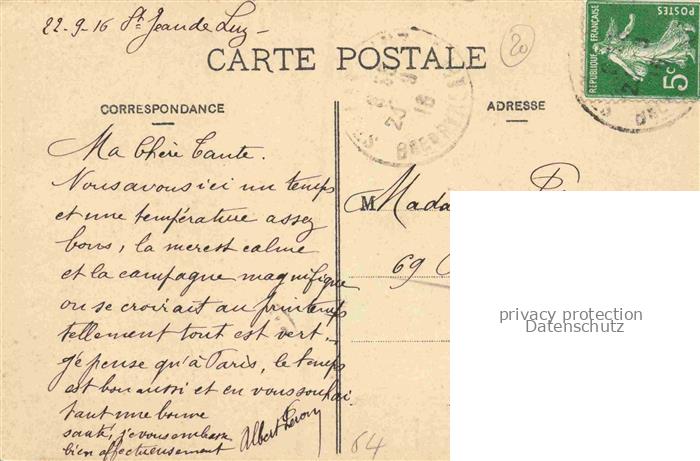 22-9-16 St Jean de Luz -
20
CARTE POSTALE
RÉPUBLIQUE FRANÇAISE
POSTES
5c
CORRESPONDANCE
ADRESSE
Ma Chère Tante.
Nous avons ici un temps
et une température assez
bons, la mer est calme
et la campagne magnifique
on se croirait au printemps
tellement tout est vert -
Je pense qu'à Paris, le temps
est bon aussi et en vous souhai
tant une bonne
santé, je vous embrasse
bien affectueusement
Albert
M Mada
69
64
privacy protection
Datenschutz